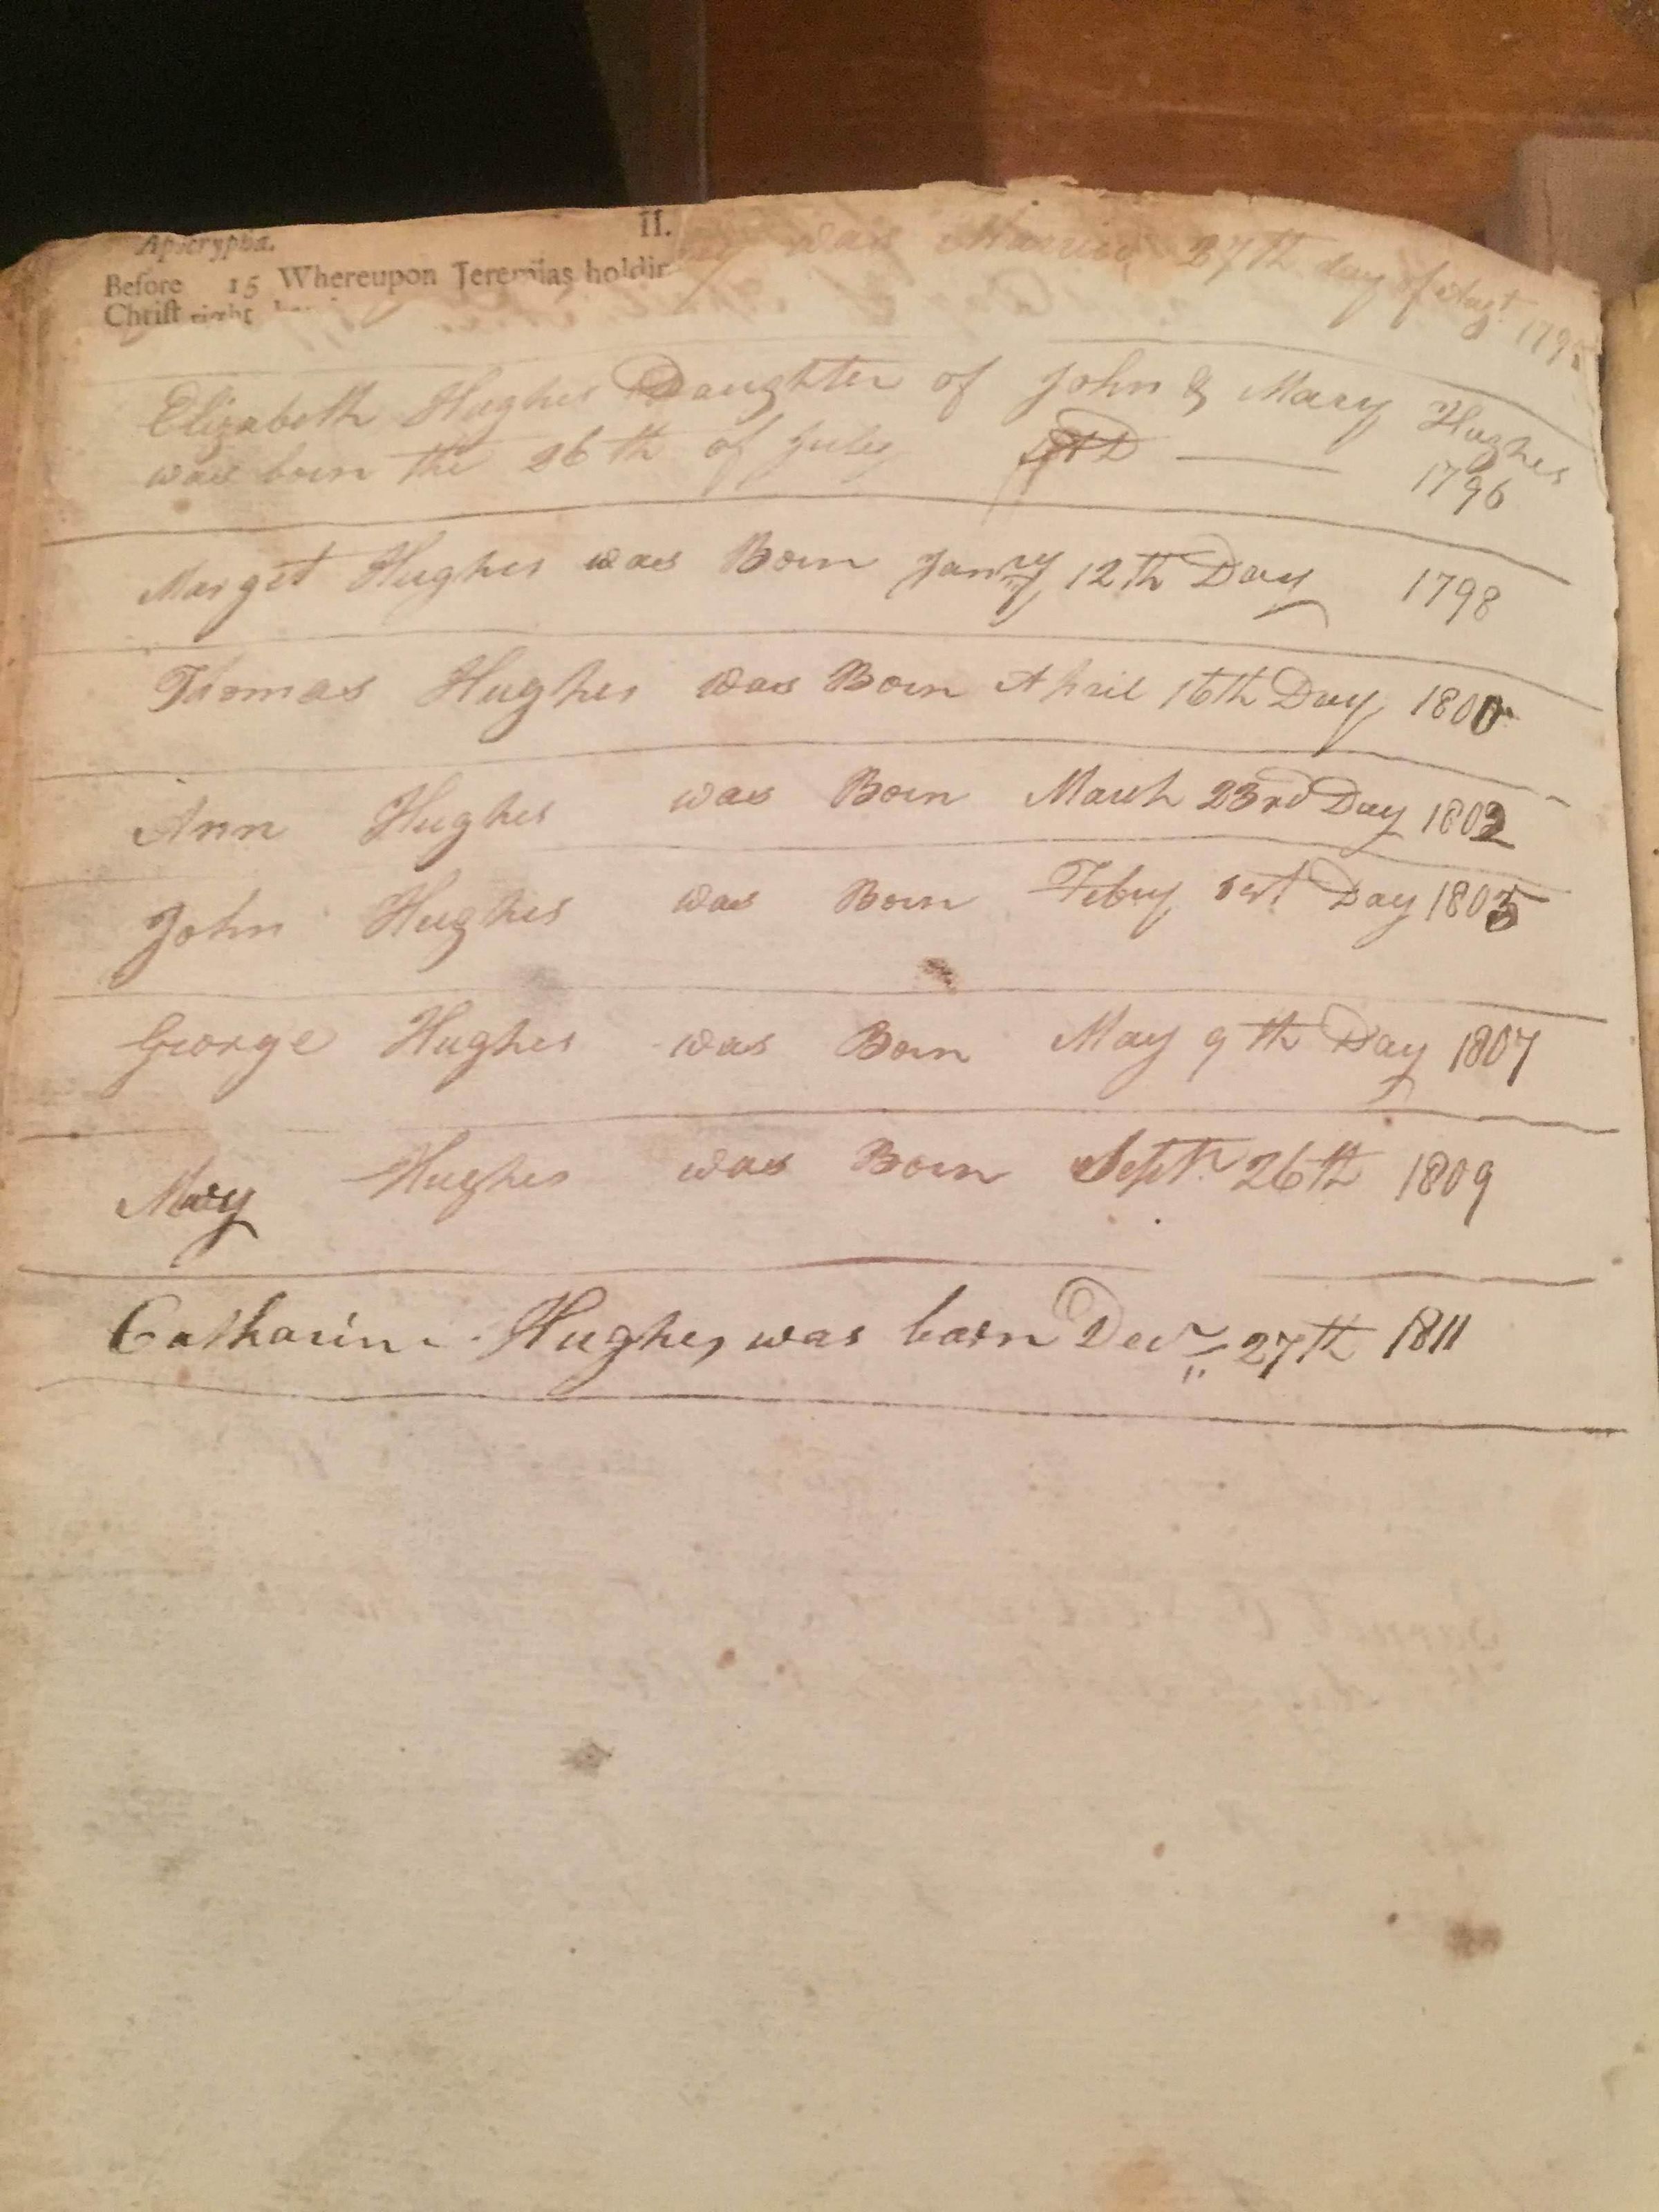 Apocrypha. II.
Before 15 Whereupon Jeremias holdin
Chriſt right
was Married 27th day of Augt. 179
Elizabeth Hughes Daughter of John & Mary Hughes
was born the 26th of July 1796
Marget Hughes was Born Janry 12th Day 1798
Thomas Hughes was Born April 16th Day 1800
Ann Hughes was Born March 23rd Day 1802
John Hughes was Born Febuy 1st Day 1805
George Hughes was Born May 9th Day 1807
Mary Hughes was Born Septr. 26th 1809
Catharine Hughes was born Decr 27th 1811